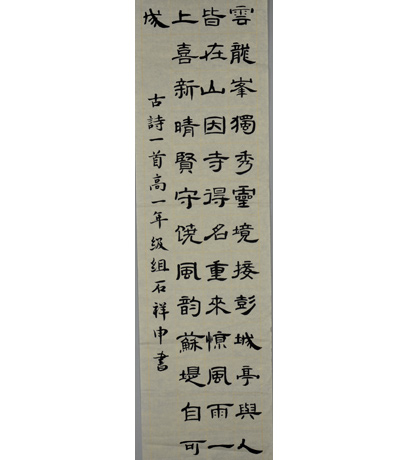 雲龍峯獨秀靈境接彭城亭與人
皆在山因寺得名重來惊風雨一
上喜新晴賢守饶風韵蘇堤自可
成
古詩一首高一年級組石祥申書